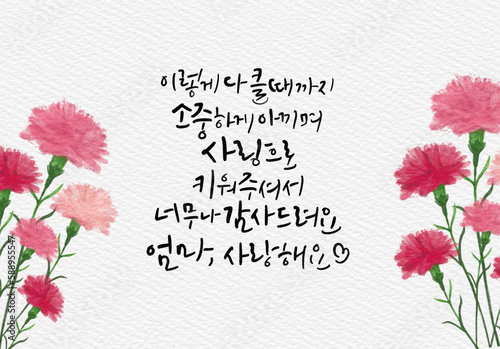 이렇게 다 클 때까지
소중하게 아끼며
사랑으로
키워주셔서
너무나 감사드려요
엄마, 사랑해요♡
Adobe Stock | #588955547